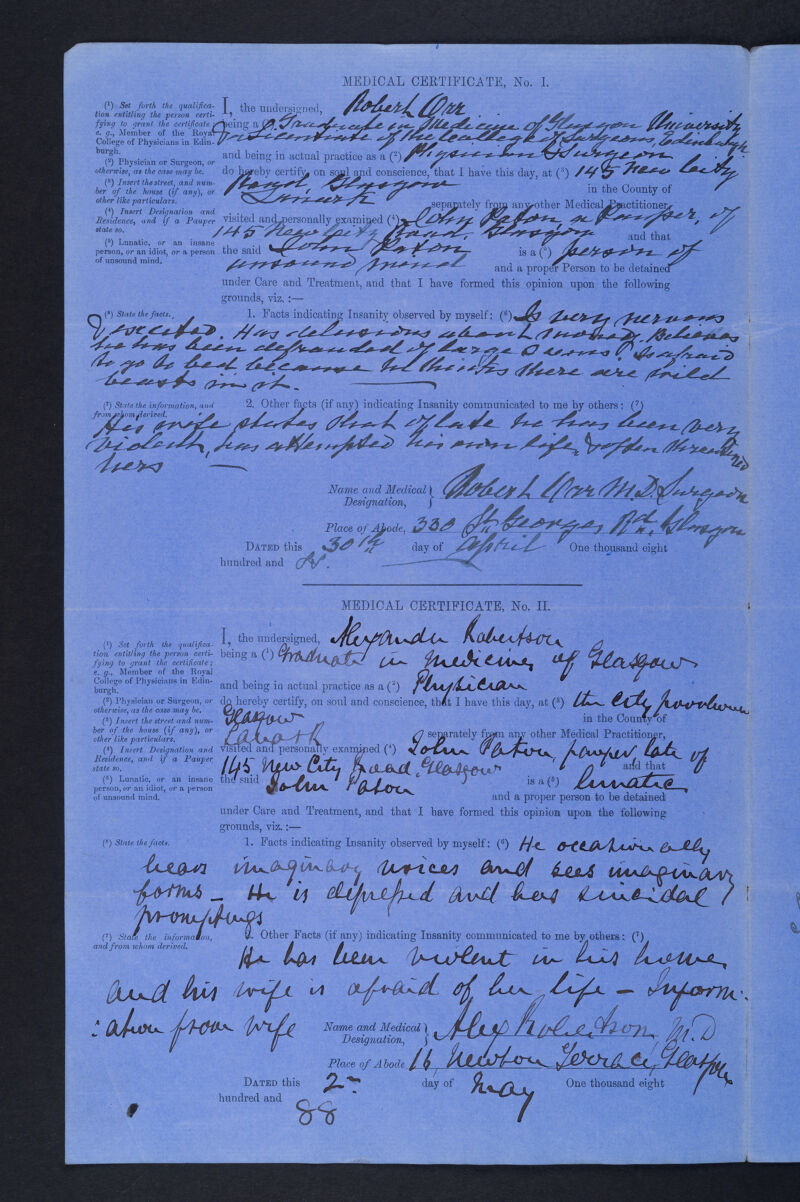 MEDICAL CERTIFICATE, No. I.
(1) Set forth the qualifica-
tion entitling the person certi-
fying to grant the certificate;
e. g., Member of the Royal
College of Physicians in Edin-
burgh.
(2) Physician or Surgeon, or
otherwise, as the case may be.
(3) Insert the street, and num-
ber of the house (if any), or
other like particulars.
(4) Insert Designation and
Residence, and if a Pauper
state so.
(5) Lunatic, or an insane
person, or an idiot, or a person
of unsound mind.
I, the undersigned, Robert Orr
being a (1) Graduate in Medicine of Glasgow University
Licentiate of the College of Surgeons, Edinburgh
and being in actual practice as a (2) Physician & Surgeon
do hereby certify, on soul and conscience, that I have this day, at (3) 145 New City
Road, Glasgow in the County of
Lanark separately from any other Medical Practitioner,
visited and personally examined (4) John Paton, a Pauper, of
145 New City Road, Glasgow and that
the said John Paton is a (5) person of
unsound mind and a proper Person to be detained
under Care and Treatment, and that I have formed this opinion upon the following
grounds, viz.:—
(6) State the facts.
1. Facts indicating Insanity observed by myself: (6) Is very nervous
& excited. Has delusions about money. Believes
he has been defrauded of large sums. Is afraid
to go to bed because he thinks there are wild
beasts in it.
(7) State the information, and
from whom derived.
2. Other facts (if any) indicating Insanity communicated to me by others: (7)
His wife states that of late he has been very
violent, has attempted his own life, & often threatened
hers
Name and Medical Designation, Robert Orr M.D. Surgeon
Place of Abode, 330 St Georges Rd, Glasgow
DATED this 30th day of April One thousand eight
hundred and
MEDICAL CERTIFICATE, No. II.
(1) Set forth the qualifica-
tion entitling the person certi-
fying to grant the certificate;
e. g., Member of the Royal
College of Physicians in Edin-
burgh.
(2) Physician or Surgeon, or
otherwise, as the case may be.
(3) Insert the street and num-
ber of the house (if any), or
other like particulars.
(4) Insert Designation and
Residence, and if a Pauper
state so.
(5) Lunatic, or an insane
person, or an idiot, or a person
of unsound mind.
I, the undersigned, Alexander Robertson
being a (1) Graduate in Medicine, of Glasgow
and being in actual practice as a (2) Physician
do hereby certify, on soul and conscience, that I have this day, at (3) the City poorhouse
Glasgow in the County of
Lanark separately from any other Medical Practitioner,
visited and personally examined (4) John Paton, pauper, late of
145 New City Road, Glasgow and that
the said John Paton is a (5) lunatic
and a proper person to be detained
under Care and Treatment, and that I have formed this opinion upon the following
grounds, viz.:—
(6) State the facts.
1. Facts indicating Insanity observed by myself: (6) He occasionally
hears imaginary voices and sees imaginary
forms – He is depressed and has suicidal
promptings
(7) State the information,
and from whom derived.
2. Other Facts (if any) indicating Insanity communicated to me by others: (7)
He has been violent in his home,
and his wife is afraid of her life – Inform-
:ation from wife
Name and Medical Designation, Alex Robertson, M.D
Place of Abode 16, Newton Terrace, Glasgow
DATED this 2nd day of May One thousand eight
hundred and 88